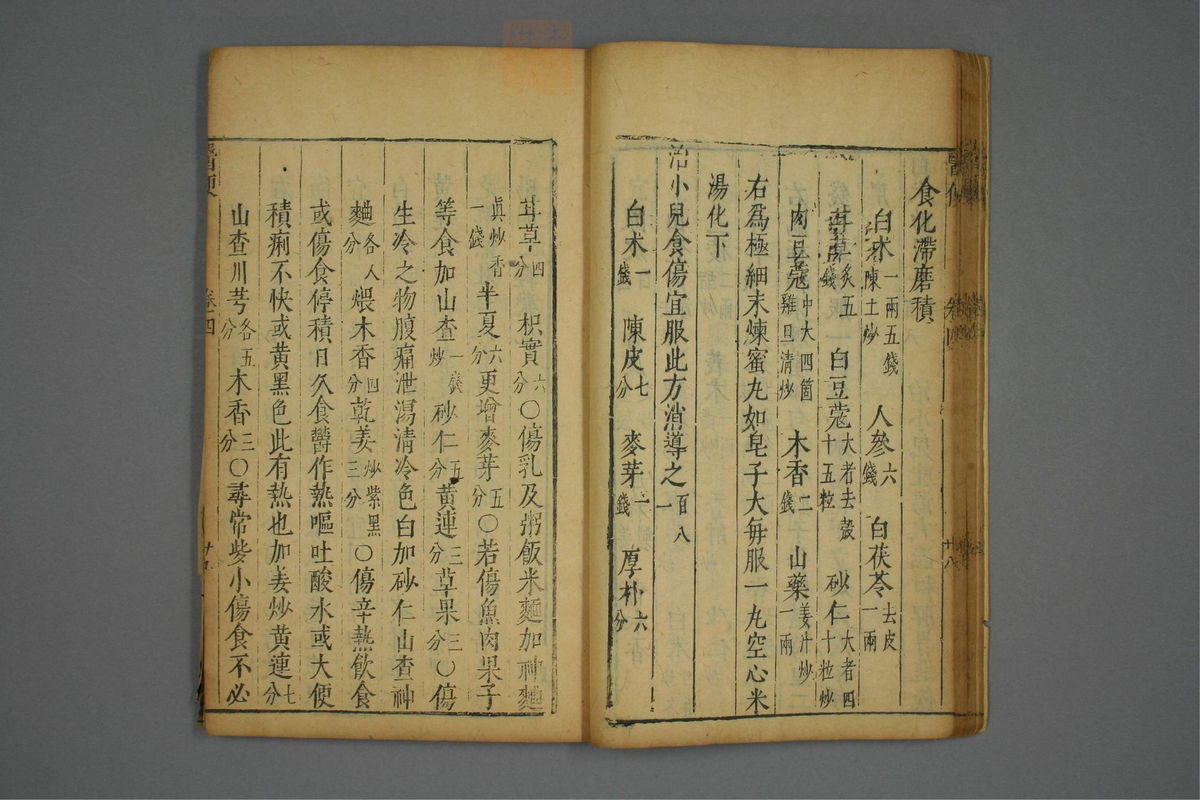 食化滯磨積
白朮一兩五錢陳土炒 人參六錢 白茯苓去皮一兩
甘草炙五錢 白豆蔻大者去殼十五粒 砂仁大者四十粒炒
肉豆蔻中大四箇雞旦清炒 木香二錢 山藥姜汁炒一兩
右爲極細末煉蜜丸如皂子大每服一丸空心米
湯化下
治小兒食傷宜服此方消導之百八一
白朮一錢 陳皮七分 麥芽一錢 厚朴六分
甘草四分 枳實六分〇傷乳及粥飯米麵加神麯
眞炒一錢香半夏六分更增麥芽五分〇若傷魚肉果子
等食加山查一錢炒砂仁五分黃連三分草果三分〇傷
生冷之物腹痛泄瀉清冷色白加砂仁山查神
麯各八分煨木香四分乾姜炒紫黑三分〇傷辛熱飲食
或傷食停積日久食鬱作熱嘔吐酸水或大便
積痢不快或黃黑色此有熱也加姜炒黃連七分
山查川芎各五分木香三分〇尋常些小傷食不必
卷四